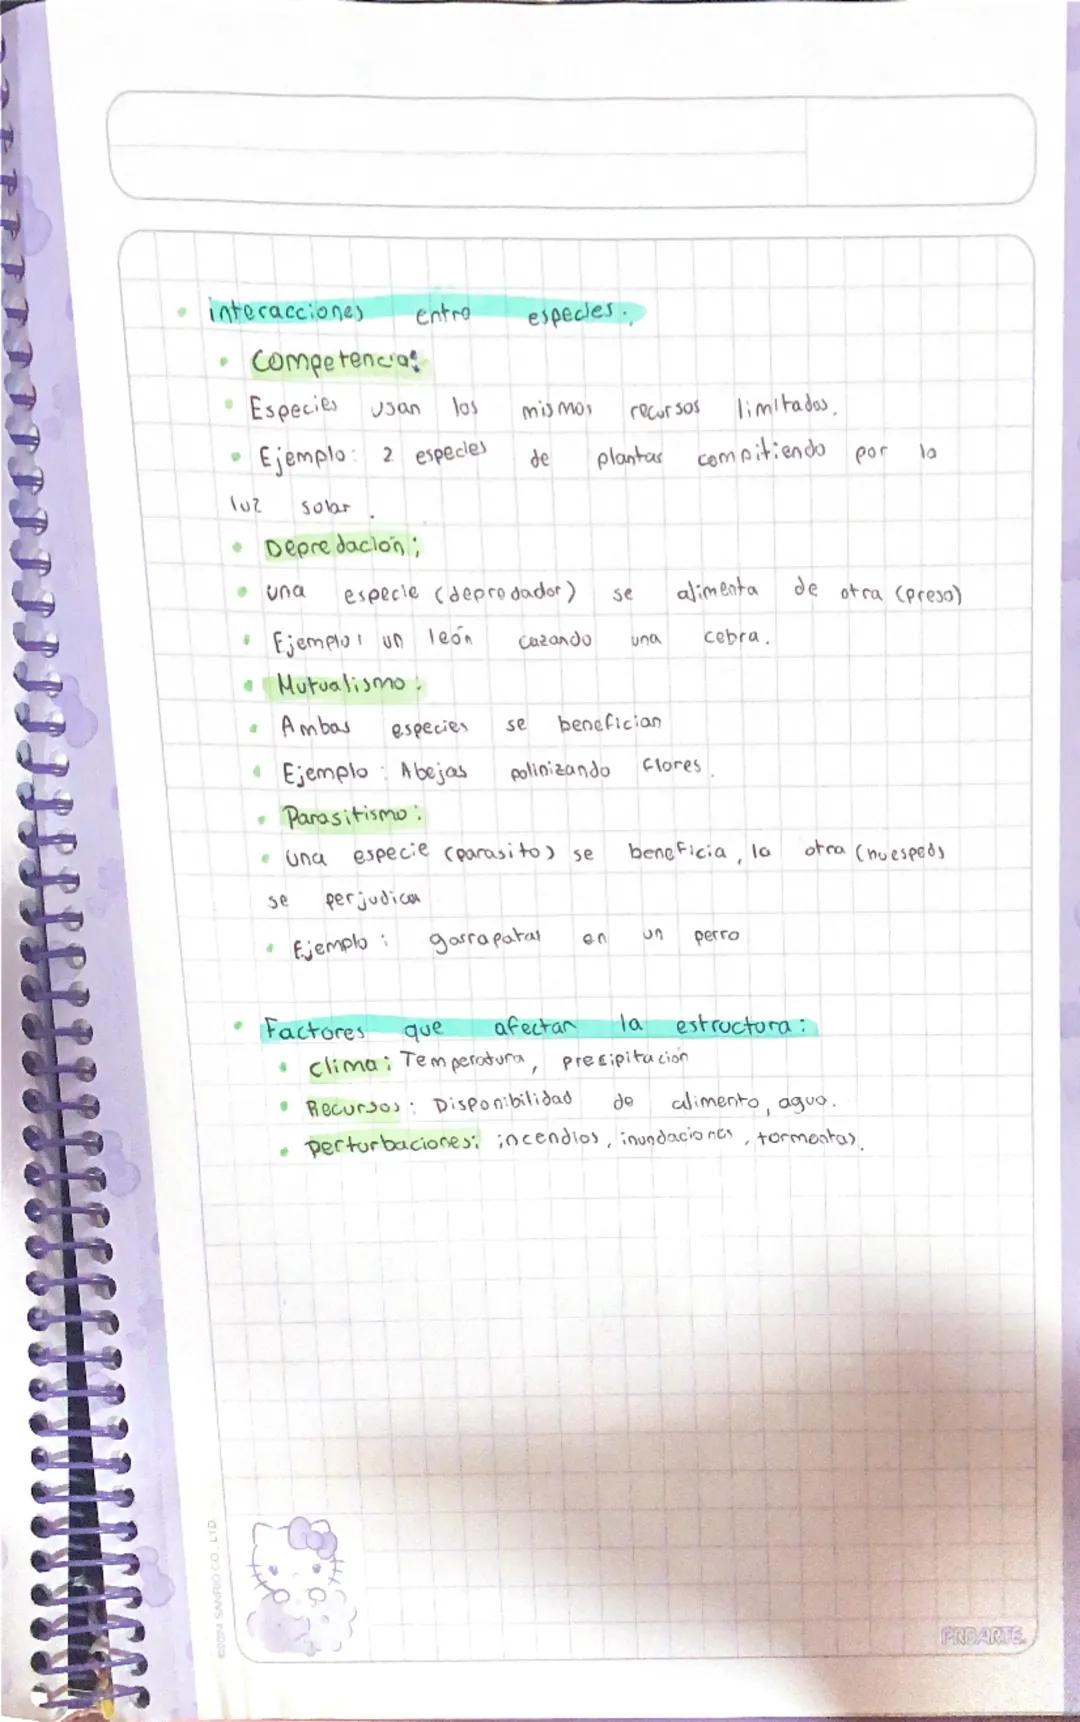 • interacciones entre especies.
• Competencia:
• Especies usan los mismos recursos limitados.
• Ejemplo: 2 especies de plantas compitiendo por la
luz solar.
• Depredación:
• una especie (depredador) se alimenta de otra (presa)
• Ejemplo: un león cazando una cebra.
• Mutualismo:
• Ambas especies se benefician
• Ejemplo: Abejas polinizando flores.
• Parasitismo:
• una especie (parasito) se beneficia, la otra (huesped)
se perjudica
• Ejemplo: garrapatas en un perro
• Factores que afectan la estructura:
• clima: Temperatura, precipitación
• Recursos: Disponibilidad de alimento, agua.
• perturbaciones: incendios, inundaciones, tormentas.
©2024 SANRIO CO., LTD.
PROARTE.